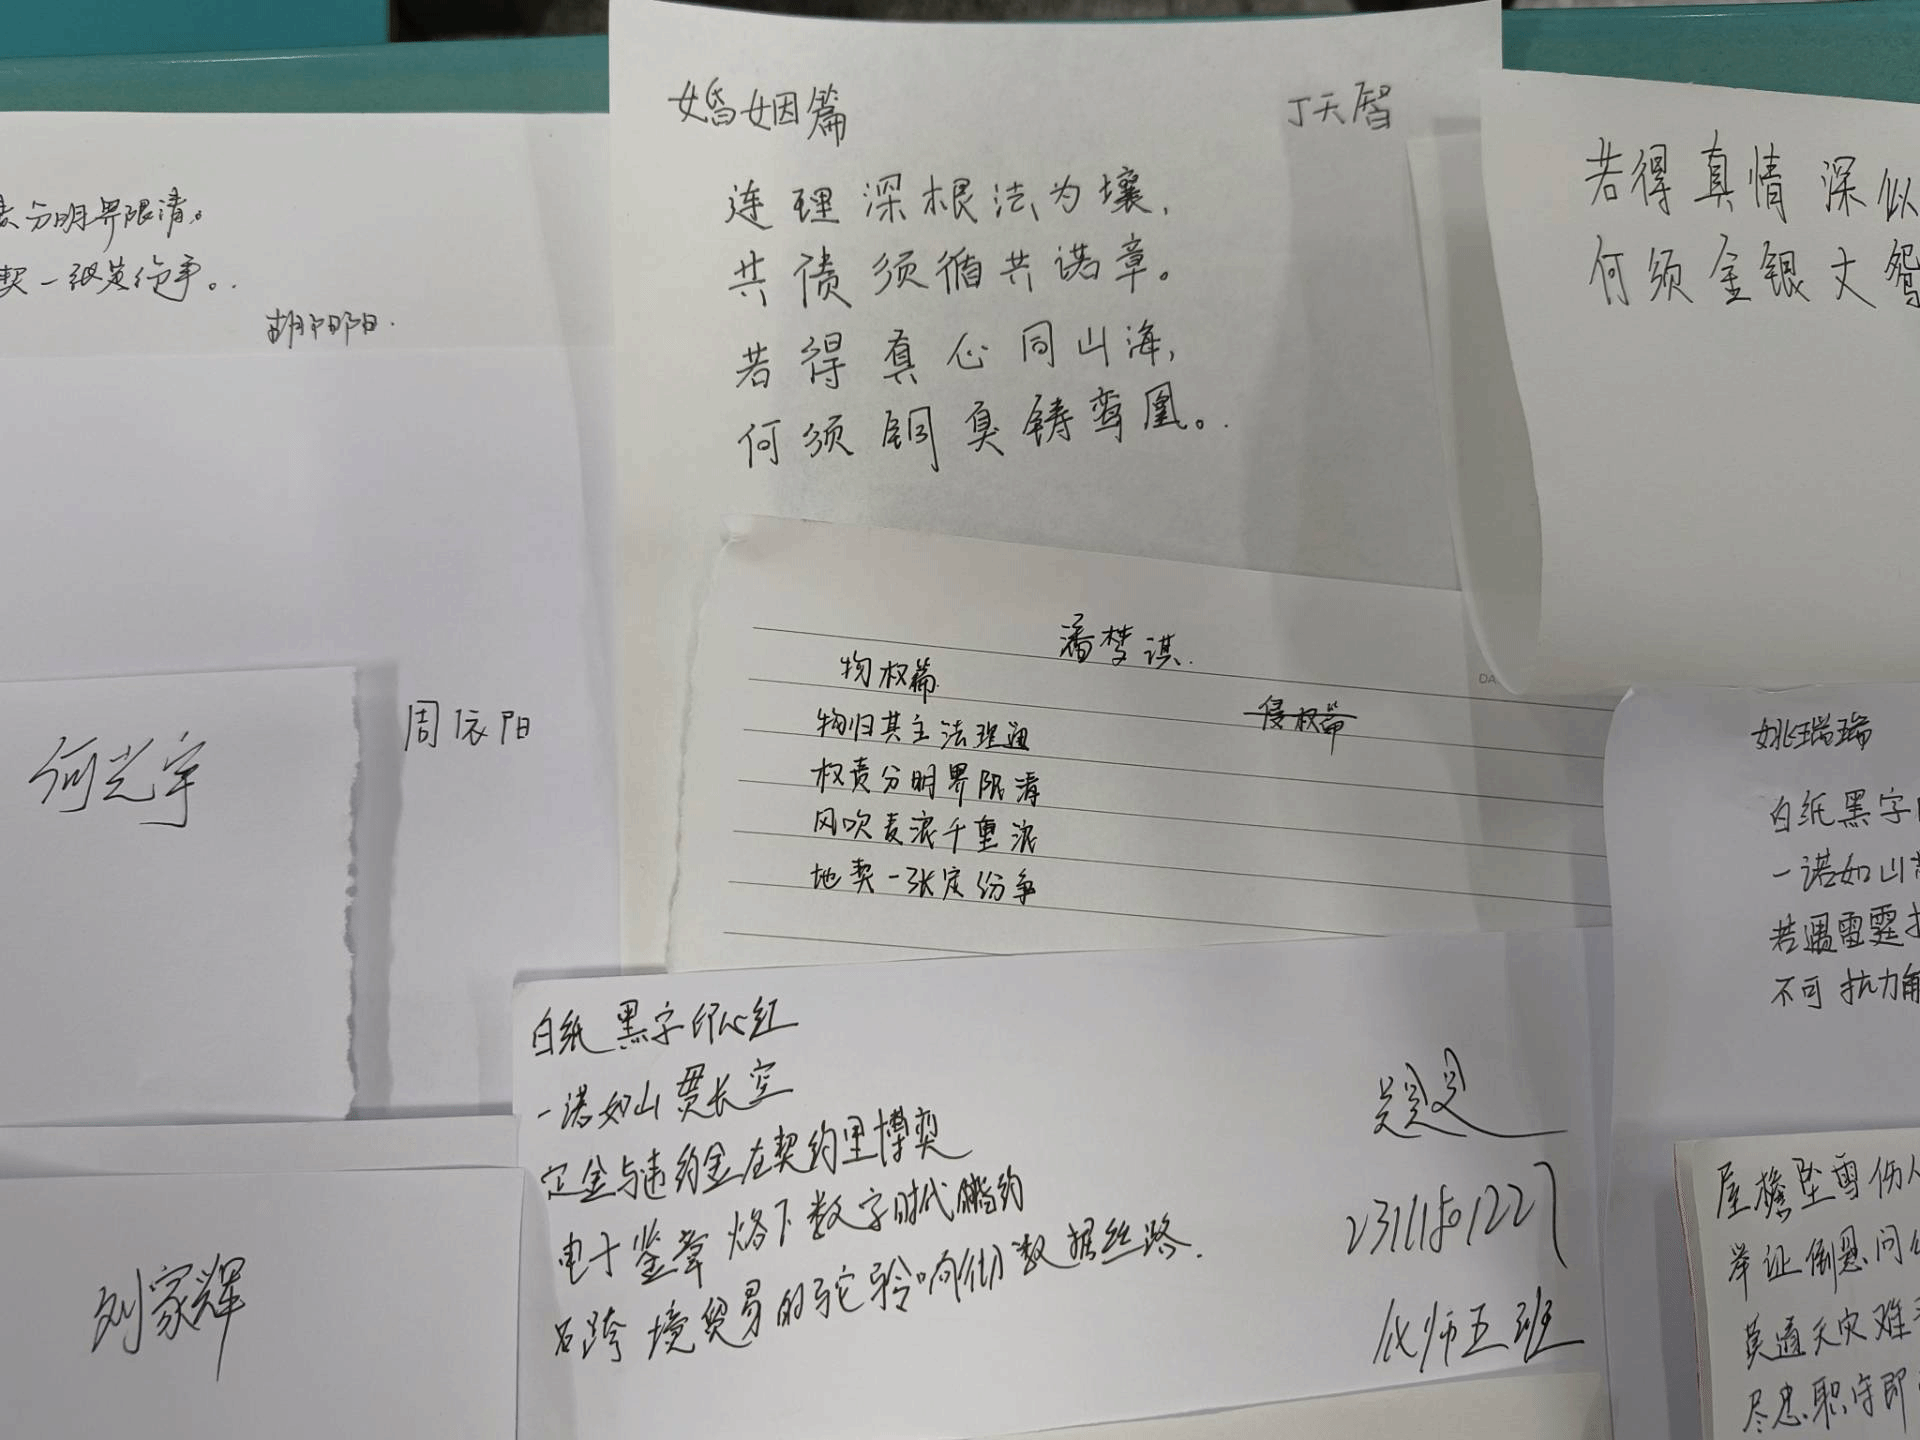 分明界限清。
契一纸莫纷争。
胡阳阳.
婚姻篇
丁天智
连理深根法为壤,
共债须循共诺章。
若得真心同山海,
何须铜臭铸鸾凰。
若得真情深似
何须金银丈鸳
何光宇
周依阳
潘梦淇.
物权篇
侵权篇
物归其主法理通
权责分明界限清
风吹麦浪千重浪
地契一张定纷争
姚瑞瑞
白纸黑字
一诺如山
若遇雷霆
不可抗力
白纸黑字印心红
一诺如山贯长空
定金与违约金在契约里博弈
电子鉴章烙下数字时代赌约
只跨境贸易的驼铃响彻数据丝路.
2311501227
化师五班
刘家辉
屋檐坠雪伤
举证倒悬问
莫道天灾难
尽忠职守即